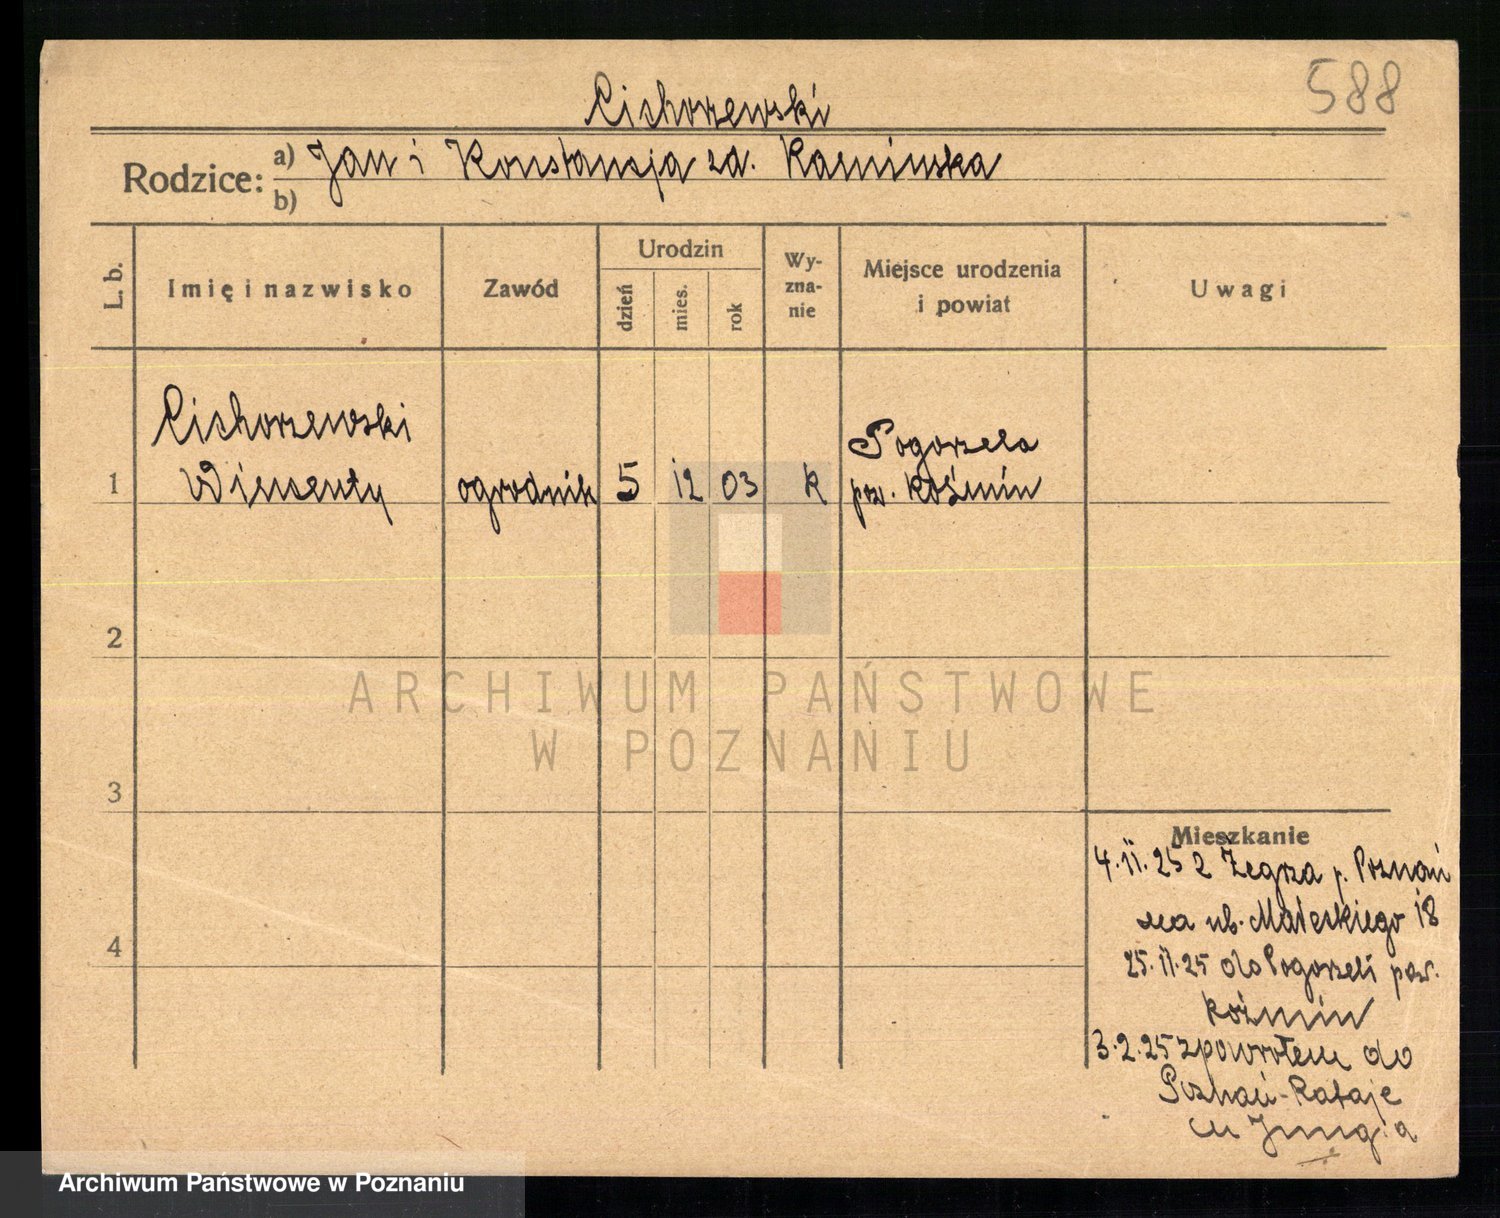 588
Cichorzewski
Rodzice:
a) Jan i Konstansja zd. Kaminska
b)
L. b.
Imię i nazwisko
Zawód
Urodzin
dzień
mies.
rok
Wy-
zna-
nie
Miejsce urodzenia
i powiat
Uwagi
Cichorzewski
Pogorzela
1 Wincenty ogrodnik 5 12 03 k pow. Koźmin
2
ARCHIWUM PAŃSTWOWE
W POZNANIU
3
Mieszkanie
4.11.25 z Żegrza p. Poznań
na ul. Mateckiego 18
4
25.11.25 do Pogorzeli pow.
Koźmin
3.2.25 zpowrotem do
Poznań-Rataje
u Jungia
Archiwum Państwowe w Poznaniu